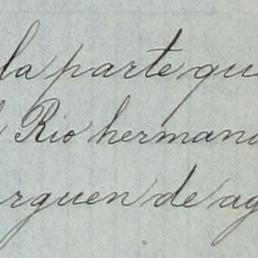 la parte que
Rio herman
rguen de ag